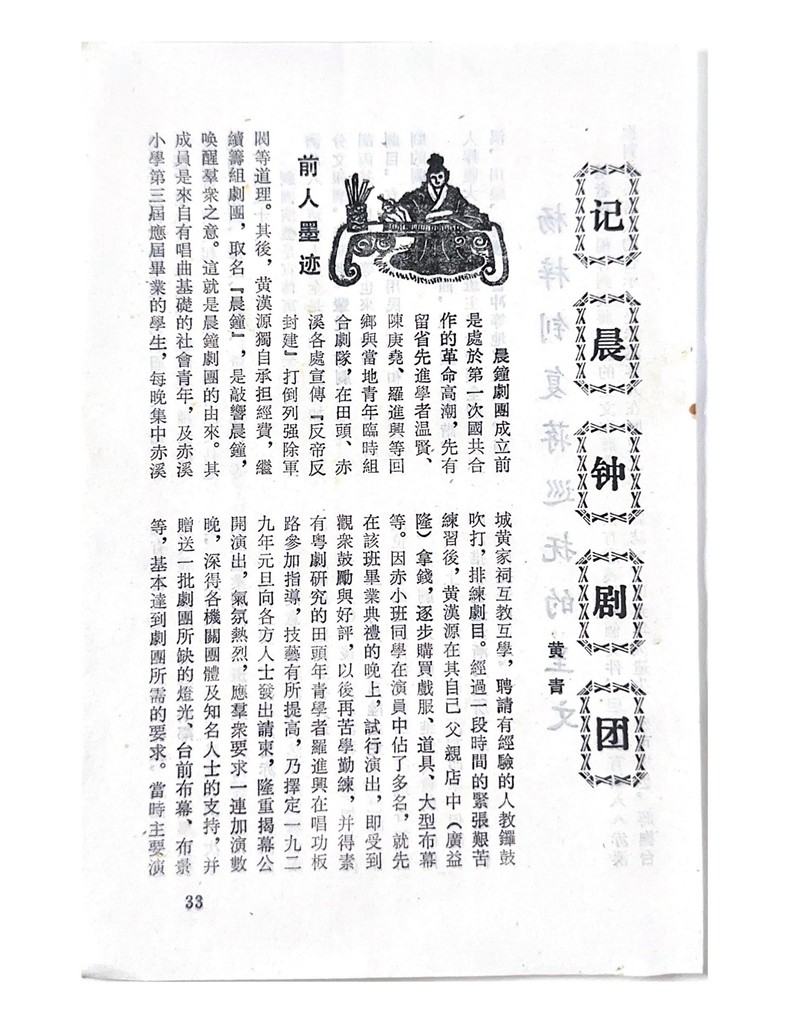 记晨钟剧团
黄青
前人墨迹
晨鐘劇團成立前
是處於第一次國共合
作的革命高潮，先有
留省先進學者温賢、
陳庚堯、羅進興等回
鄉與當地青年臨時組
合劇隊，在田頭、赤
溪各處宣傳『反帝反
封建』打倒列强除軍
閥等道理。其後，黄漢源獨自承担經費，繼
續籌組劇團，取名『晨鐘』，是敲響晨鐘，
唤醒羣衆之意。這就是晨鐘劇團的由來。其
成員是來自有唱曲基礎的社會青年，及赤溪
小學第三屆應屆畢業的學生，每晚集中赤溪
城黄家祠互教互學，聘請有經驗的人教鑼鼓
吹打，排練劇目。經過一段時間的緊張艱苦
練習後，黄漢源在其自己父親店中（廣益
隆）拿錢，逐步購買戲服、道具、大型布幕
等。因赤小班同學在演員中佔了多名，就先
在該班畢業典禮的晚上，試行演出，即受到
觀衆鼓勵與好評，以後再苦學勤練，并得素
有粤劇研究的田頭年青學者羅進興在唱功板
路參加指導，技藝有所提高，乃擇定一九二
九年元旦向各方人士發出請柬，隆重揭幕公
開演出，氣氛熱烈，應羣衆要求一連加演數
晚，深得各機關團體及知名人士的支持，并
贈送一批劇團所缺的燈光、台前布幕、布景
等，基本達到劇團所需的要求。當時主要演
33